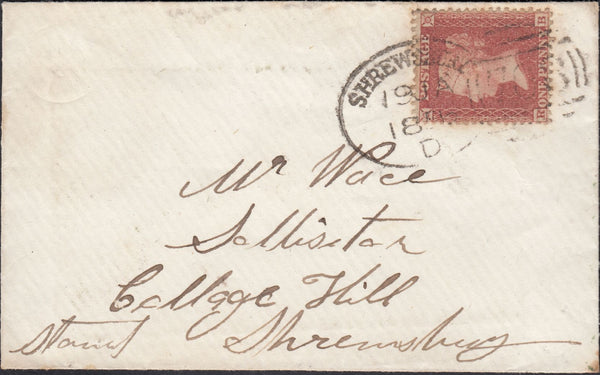 SHREWS
19
18
D
POSTAGE
ONE PENNY
B
Mr Wace
Sollisitar
Collage Hill
Shrewsbury